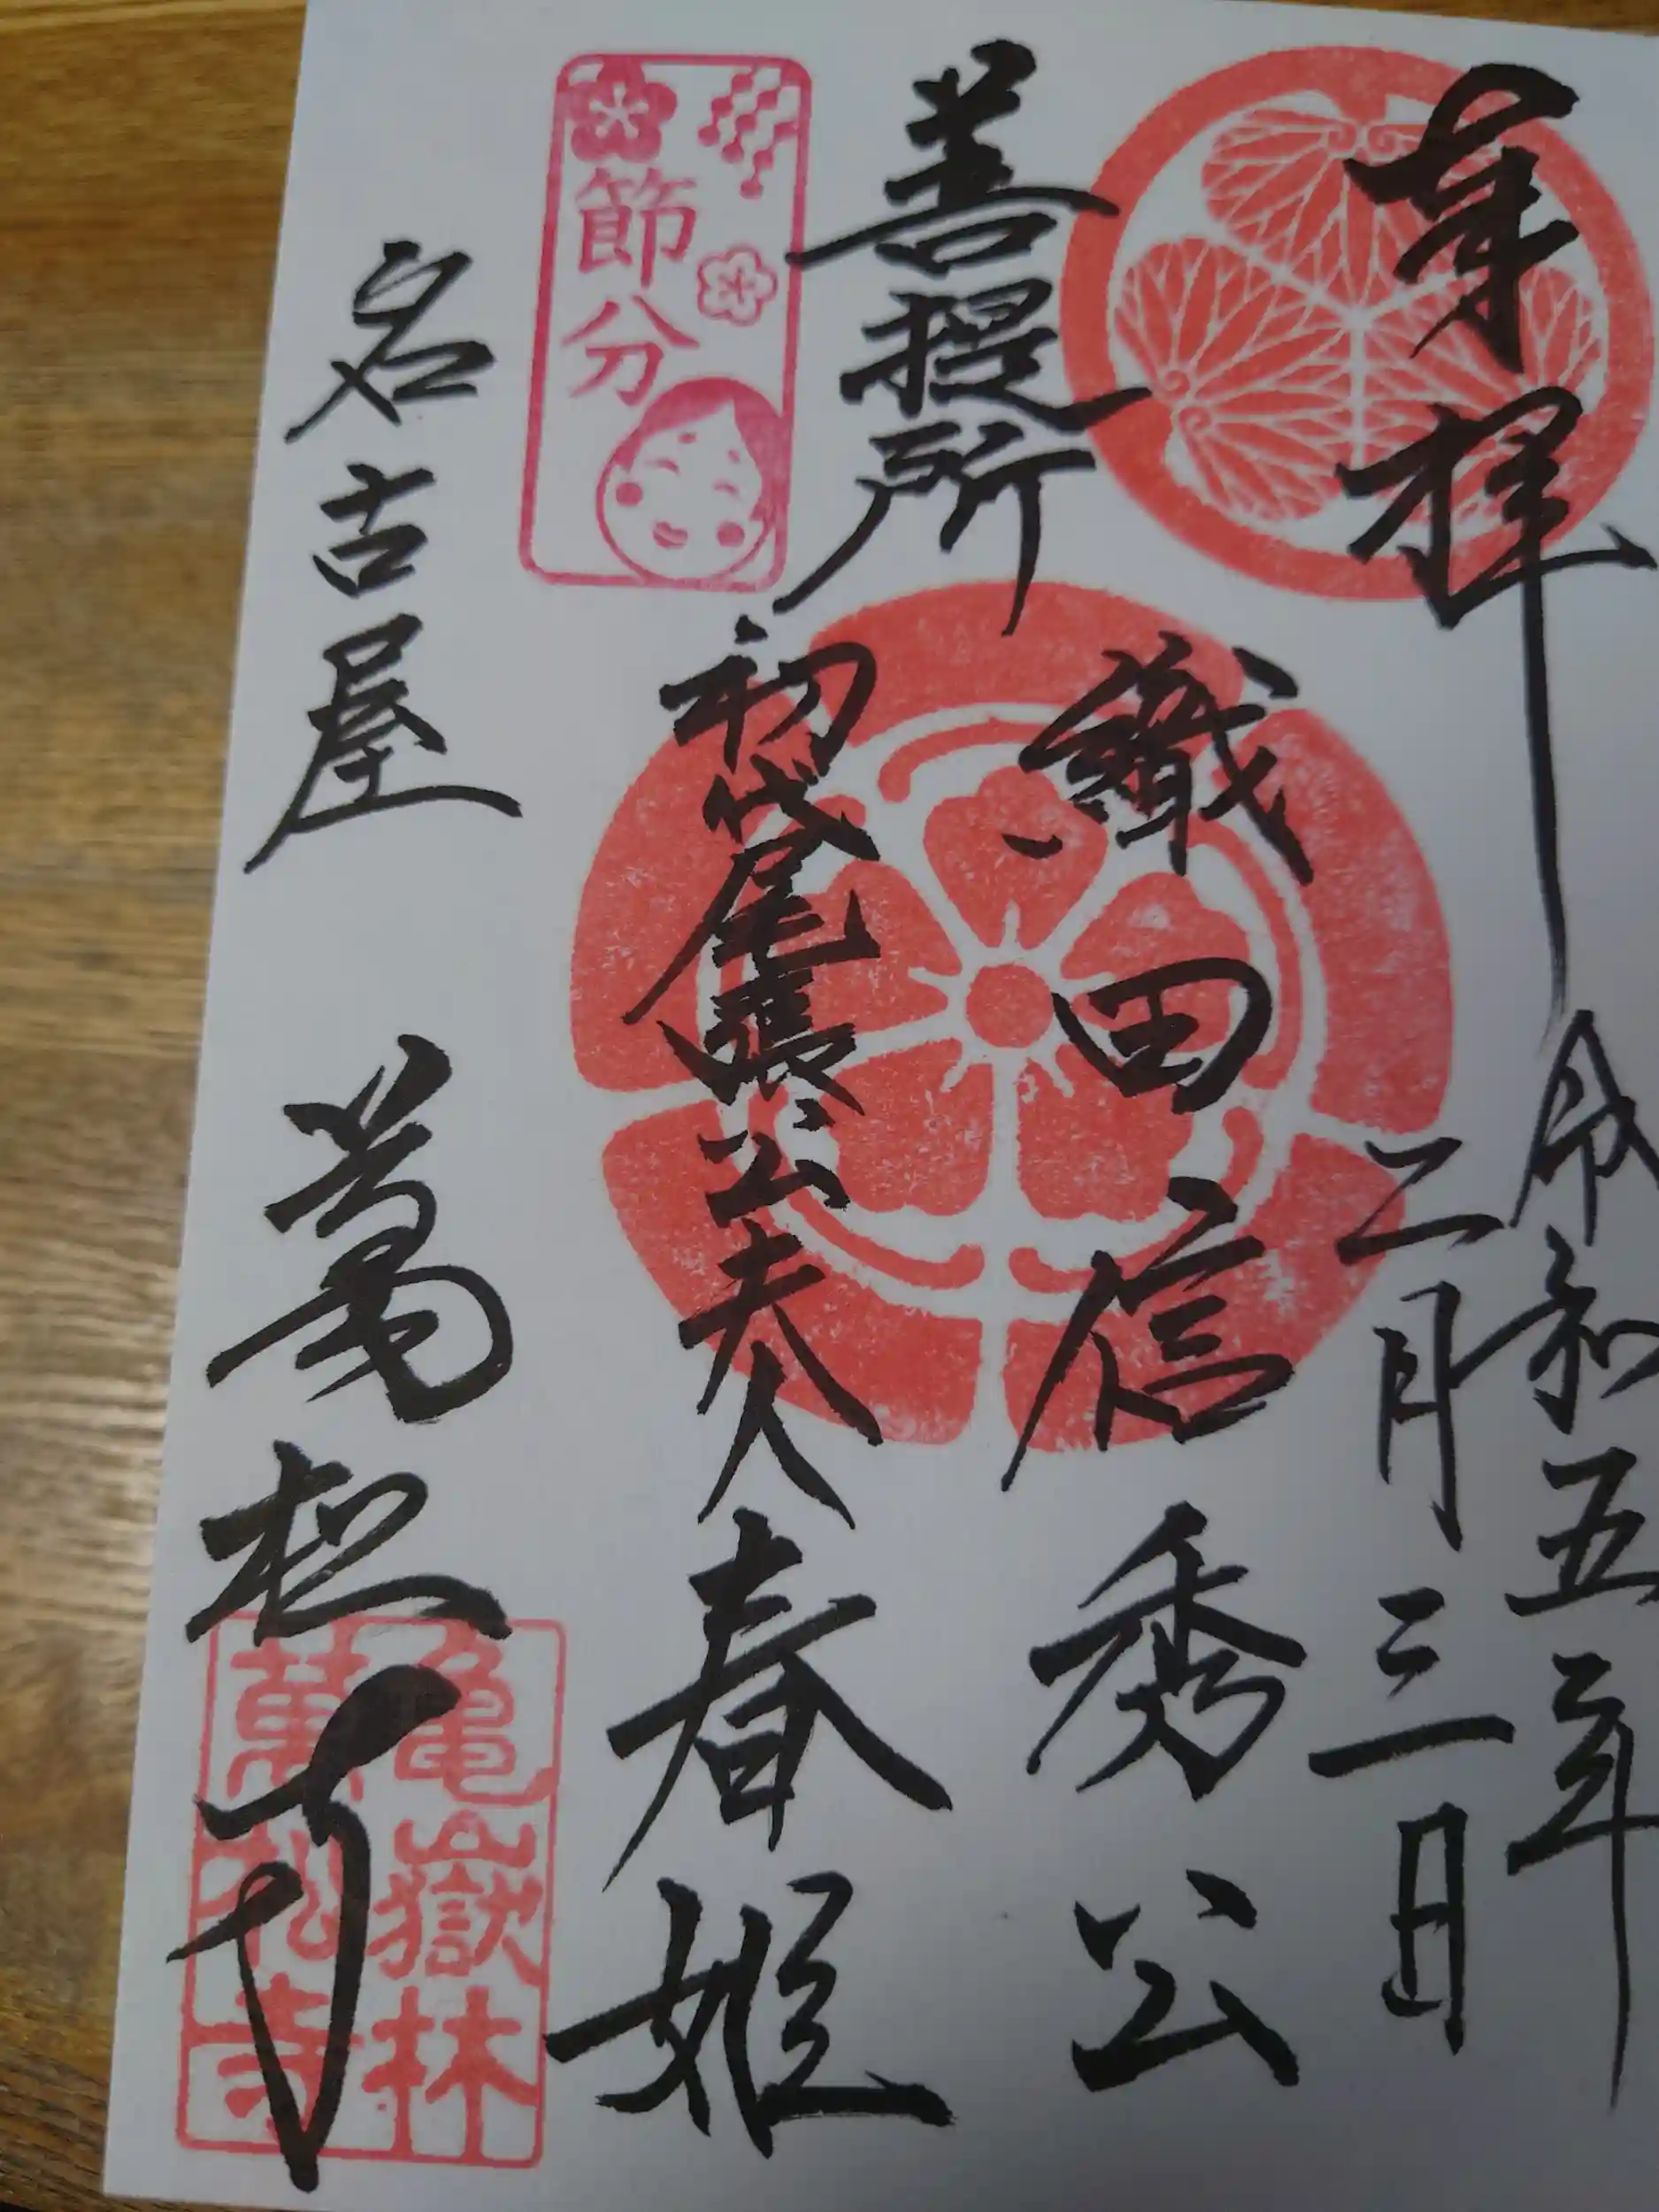 奉拝
令和五年
二月三日
織田信秀公
菩提所
初代尾張公夫人
春姫
節分
名古屋 萬松寺
亀嶽林
萬松寺